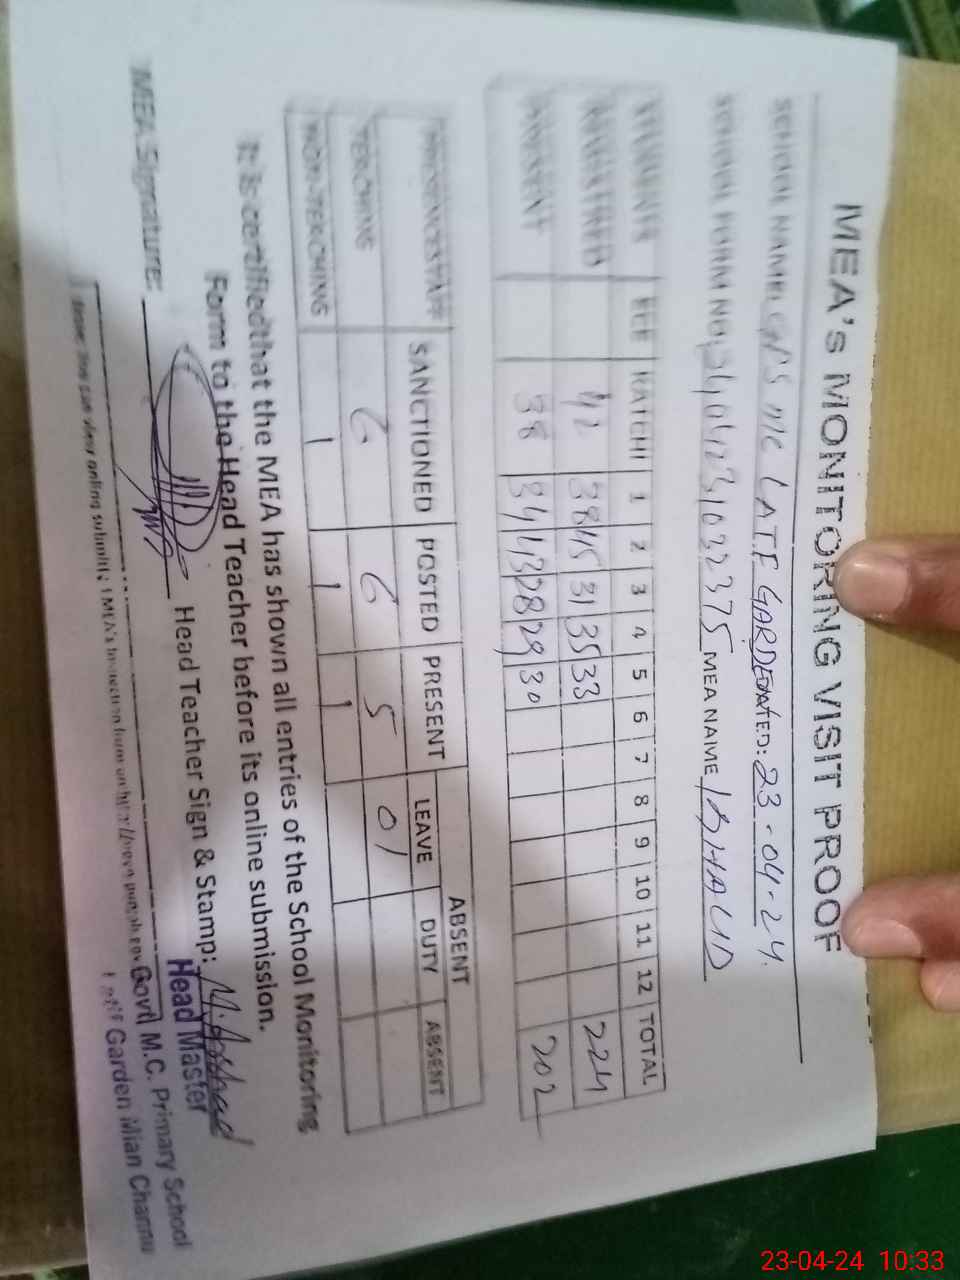 MEA's MONITORING VISIT PROOF
SCHOOL NAME: GPS MC LATIF GARDEN DATED: 23-04-24.
SCHOOL FORM NO. MEA NAME KHALID
STUDENTS ECE KATCHI 1 2 3 4 5 6 7 8 9 10 11 12 TOTAL
REGISTRED 42 38 45 31 35 33 224
PRESENT 38 34 43 28 29 30 202
ABSENT
PRESENCE STAFF SANCTIONED POSTED PRESENT LEAVE DUTY ABSENT
TEACHING 6 6 5 01
NON-TEACHING 1 1 1
It is certified that the MEA has shown all entries of the School Monitoring
Form to the Head Teacher before its online submission.
MEA Signature: Head Teacher Sign & Stamp: M. Arshad
Head Master
Govt M.C. Primary School
Garden Mian Channu
23-04-24 10:33